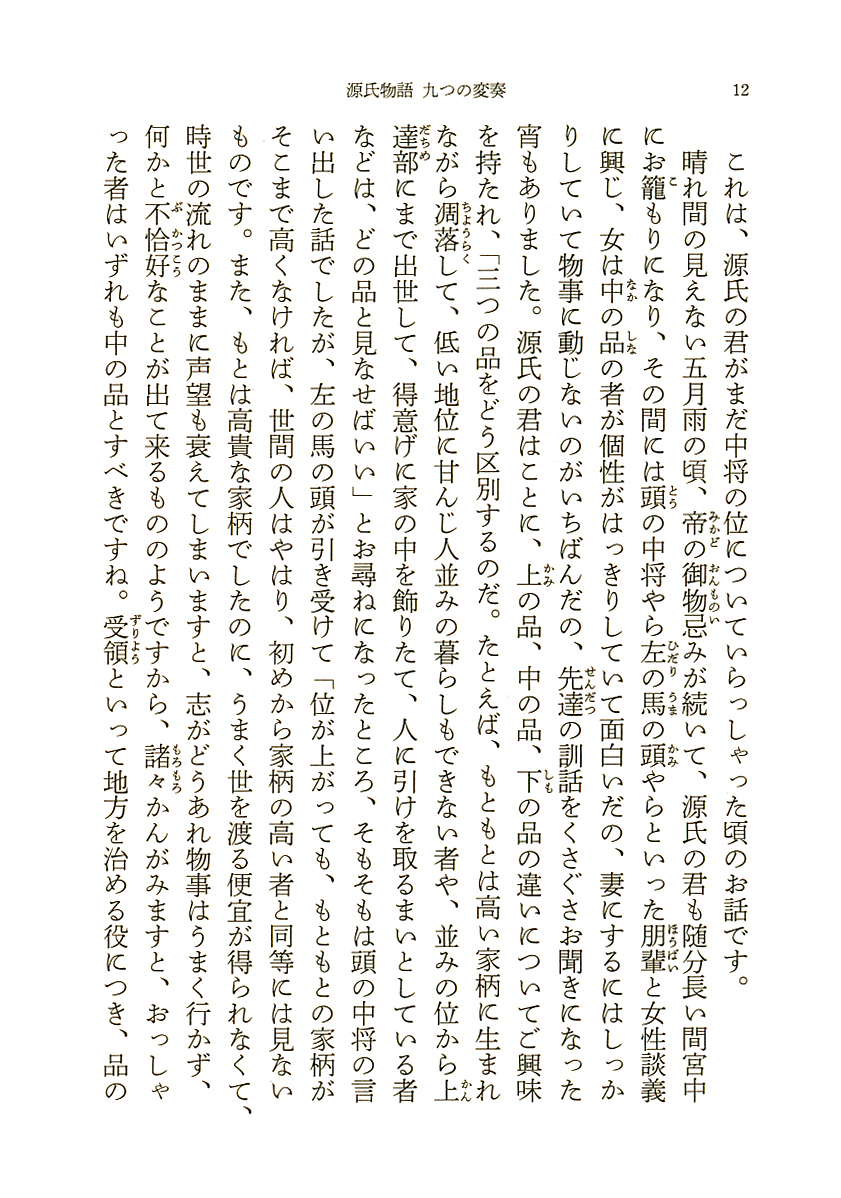 源氏物語 九つの変奏
12
これは、源氏の君がまだ中将の位についていらっしゃった頃のお話です。
晴れ間の見えない五月雨の頃、帝の御物忌みが続いて、源氏の君も随分長い間宮中
にお籠もりになり、その間には頭の中将やら左の馬の頭やらといった朋輩と女性談義
に興じ、女は中の品の者が個性がはっきりしていて面白いだの、妻にするにはしっか
りしていて物事に動じないのがいちばんだの、先達の訓話をくさぐさお聞きになった
宵もありました。源氏の君はことに、上の品、中の品、下の品の違いについてご興味
を持たれ、「三つの品をどう区別するのだ。たとえば、もともとは高い家柄に生まれ
ながら凋落して、低い地位に甘んじ人並みの暮らしもできない者や、並みの位から上
達部にまで出世して、得意げに家の中を飾りたて、人に引けを取るまいとしている者
などは、どの品と見なせばいい」とお尋ねになったところ、そもそもは頭の中将の言
い出した話でしたが、左の馬の頭が引き受けて「位が上がっても、もともとの家柄が
そこまで高くなければ、世間の人はやはり、初めから家柄の高い者と同等には見ない
ものです。また、もとは高貴な家柄でしたのに、うまく世を渡る便宜が得られなくて、
時世の流れのままに声望も衰えてしまいますと、志がどうあれ物事はうまく行かず、
何かと不恰好なことが出て来るもののようですから、諸々かんがみますと、おっしゃ
った者はいずれも中の品とすべきですね。受領といって地方を治める役につき、品の